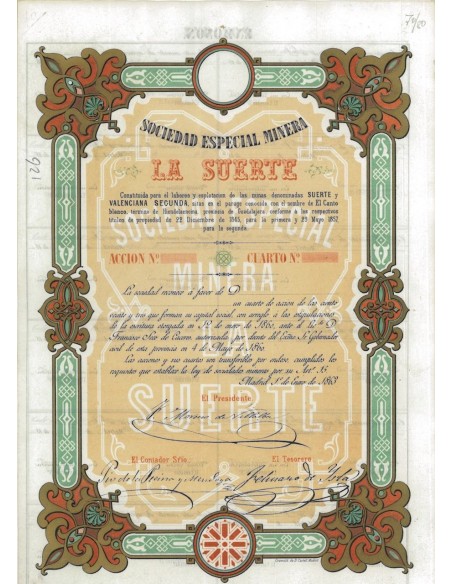 70/80
921
SOCIEDAD ESPECIAL MINERA
LA SUERTE
Constituida para el laboreo y esplotacion de las minas denominadas SUERTE y
VALENCIANA SEGUNDA, sitas en el parage conocido con el nombre de El Canto
blanco, término de Hiendelaencina, provincia de Guadalajara; conforme a los respectivos
títulos de propiedad de 22 Diciembre de 1845, para la primera y 27 Mayo 1857
para la segunda.
ACCION Nº
CUARTO Nº
La sociedad reconoce á favor de D
un cuarto de accion de las ciento
veinte y que forman su capital social, con arreglo á las estipulaciones
de la escritura otorgada en 12 de mayo de 1860, ante el Lic.º D.
Francisco Seco de Caceres, autorizada por decreto del Exmo. Sr. Gobernador
civil de esta provincia en 4 de Mayo de 1860.
Las acciones y sus cuartos son transferibles por endoso, cumplidos los
requisitos que establece la ley de sociedades mineras por su Artº 16.
Madrid 1º de Enero de 1863
El Presidente
El Contador Srio.
El Tesorero
SOCIEDAD ESPECIAL
MINERA
LA
SUERTE